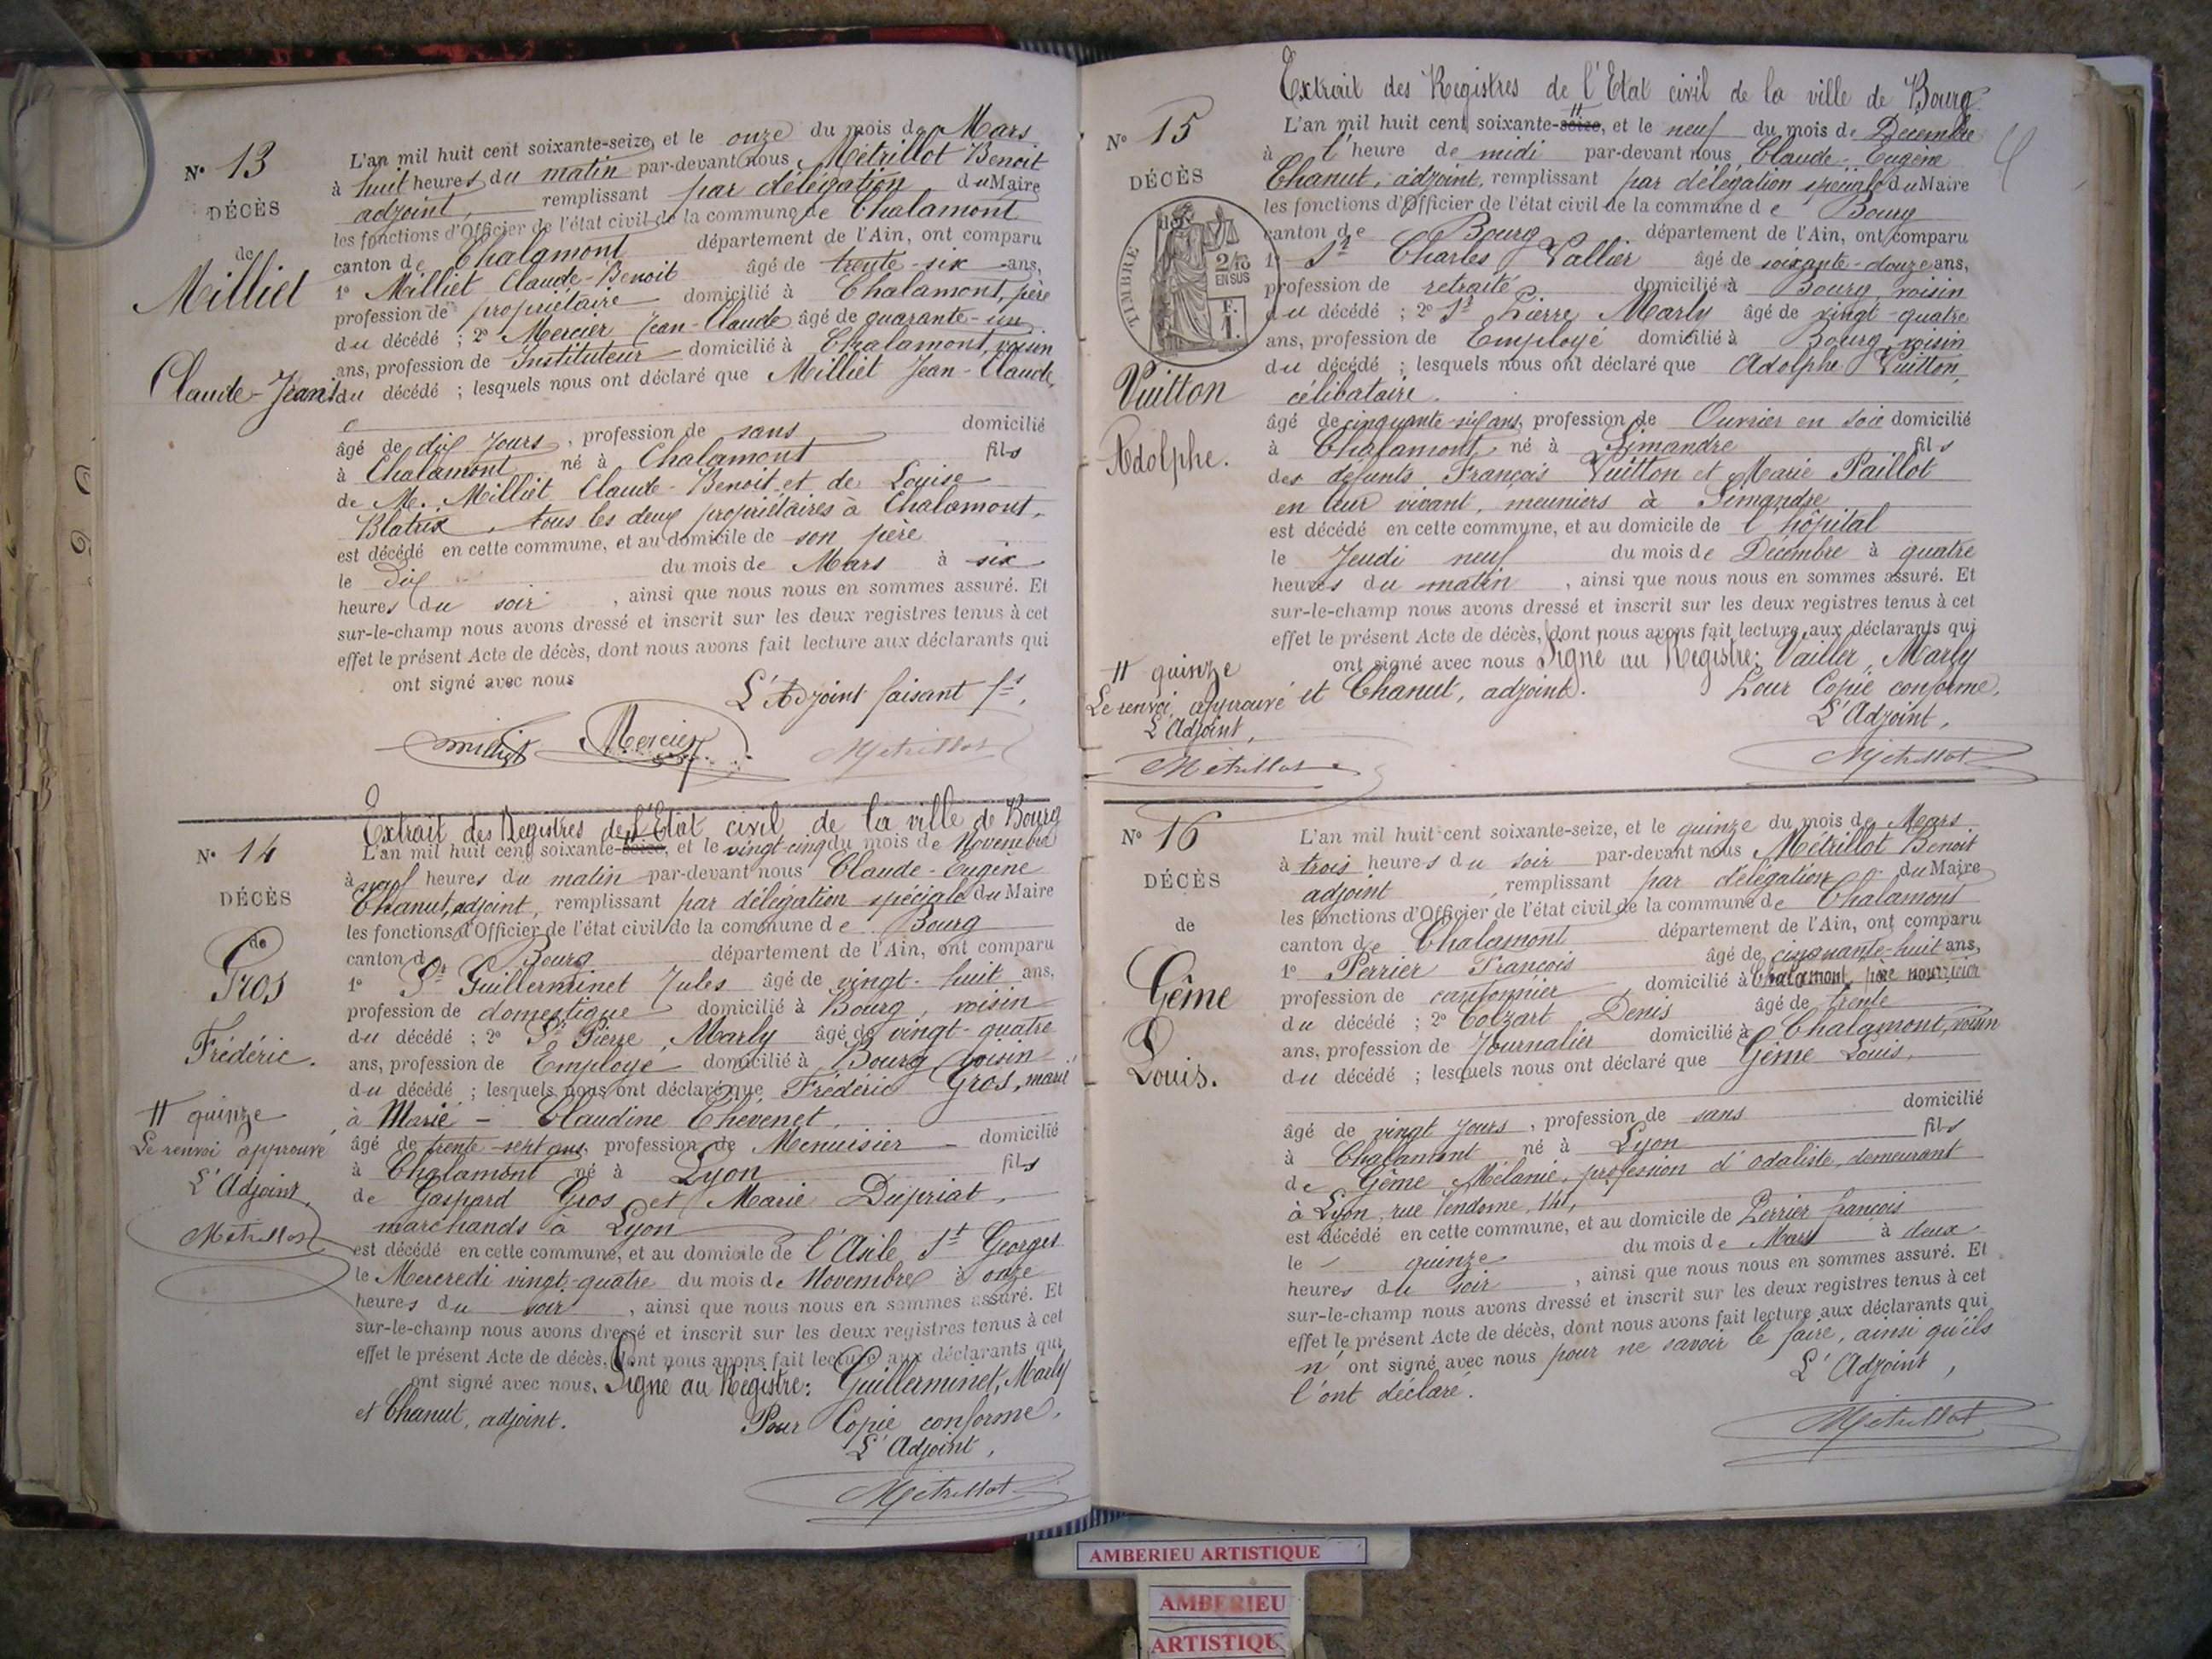 N° 13
DÉCÈS
de
Milliet
Claude-Jean
L'an mil huit cent soixante-seize, et le onze du mois de Mars
à huit heures du matin par-devant nous Métrillot Benoit
adjoint, remplissant par délégation du Maire
les fonctions d'Officier de l'état civil de la commune de Chalamont
canton de Chalamont département de l'Ain, ont comparu
1° Milliet Claude-Benoit âgé de trente-six ans,
profession de propriétaire domicilié à Chalamont, père
du décédé ; 2° Mercier Jean-Claude âgé de quarante-un
ans, profession de Instituteur domicilié à Chalamont, voisin
du décédé ; lesquels nous ont déclaré que Milliet Jean-Claude,
âgé de dix jours, profession de sans domicilié
à Chalamont né à Chalamont fils
de M. Milliet Claude-Benoit et de Louise
Blatrix, tous les deux propriétaires à Chalamont,
est décédé en cette commune, et au domicile de son père
le dix du mois de Mars à six
heures du soir, ainsi que nous nous en sommes assuré. Et
sur-le-champ nous avons dressé et inscrit sur les deux registres tenus à cet
effet le présent Acte de décès, dont nous avons fait lecture aux déclarants qui
ont signé avec nous
L'Adjoint faisant fs.
Milliet Mercier Métrillot
N° 14
DÉCÈS
de
Gros
Frédéric.
# quinze
Le renvoi approuvé
L'Adjoint,
Métrillot
Extrait des Registres de l'Etat civil de la ville de Bourg
L'an mil huit cent soixante-seize #, et le vingt-cinq du mois de Novembre
à neuf heures du matin par-devant nous Claude-Eugène
Chanut, adjoint, remplissant par délégation spéciale du Maire
les fonctions d'Officier de l'état civil de la commune de Bourg
canton d Bourg département de l'Ain, ont comparu
1° Sr Guillerminet Jules âgé de vingt-huit ans,
profession de domestique domicilié à Bourg, voisin
du décédé ; 2° Sr Pierre Marly âgé de vingt-quatre
ans, profession de Employé domicilié à Bourg voisin
du décédé ; lesquels nous ont déclaré que Frédéric Gros, marié
à Marie-Claudine Chevenet,
âgé de trente-sept ans, profession de Menuisier domicilié
à Chalamont né à Lyon fils
de Gaspard Gros et Marie Dupriat,
marchands à Lyon
est décédé en cette commune, et au domicile de l'Asile St Georges
le Mercredi vingt-quatre du mois de Novembre à onze
heures du soir, ainsi que nous nous en sommes assuré. Et
sur-le-champ nous avons dressé et inscrit sur les deux registres tenus à cet
effet le présent Acte de décès, dont nous avons fait lecture aux déclarants qui
ont signé avec nous. Signé au Registre: Guillerminet, Marly
et Chanut, adjoint. Pour Copie conforme,
L'Adjoint,
Métrillot
N° 15
DÉCÈS
TIMBRE
2/10
EN SUS
Vuitton
Adolphe.
# quinze
Le renvoi approuvé
L'Adjoint,
Métrillot
Extrait des Registres de l'Etat civil de la ville de Bourg
L'an mil huit cent soixante-seize #, et le neuf du mois de Décembre
à l'heure de midi par-devant nous Claude-Eugène
Chanut, adjoint, remplissant par délégation spéciale du Maire
les fonctions d'Officier de l'état civil de la commune de Bourg
canton de Bourg département de l'Ain, ont comparu
1° Sr Charles Vallier âgé de soixante-douze ans,
profession de retraité domicilié à Bourg, voisin
du décédé ; 2° Sr Pierre Marly âgé de vingt-quatre
ans, profession de Employé domicilié à Bourg, voisin
du décédé ; lesquels nous ont déclaré que Adolphe Vuitton,
célibataire.
âgé de cinquante-six ans, profession de Ouvrier en soie domicilié
à Chalamont, né à Simandre fils
des défunts François Vuitton et Marie Paillot
en leur vivant, meuniers à Simandre
est décédé en cette commune, et au domicile de l'hôpital
le Jeudi neuf du mois de Décembre à quatre
heures du matin, ainsi que nous nous en sommes assuré. Et
sur-le-champ nous avons dressé et inscrit sur les deux registres tenus à cet
effet le présent Acte de décès, dont nous avons fait lecture aux déclarants qui
ont signé avec nous Signé au Registre: Vallier, Marly
et Chanut, adjoint. Pour Copie conforme,
L'Adjoint,
Métrillot
N° 16
DÉCÈS
de
Gême
Louis.
L'an mil huit cent soixante-seize, et le quinze du mois de Mars
à trois heures du soir par-devant nous Métrillot Benoit
adjoint, remplissant par délégation du Maire
les fonctions d'Officier de l'état civil de la commune de Chalamont
canton de Chalamont département de l'Ain, ont comparu
1° Perrier François âgé de cinquante-huit ans,
profession de cantonnier domicilié à Chalamont, père nourricier
du décédé ; 2° Colzart Denis âgé de trente
ans, profession de Journalier domicilié à Chalamont, voisin
du décédé ; lesquels nous ont déclaré que Gême Louis,
âgé de vingt jours, profession de sans domicilié
à Chalamont né à Lyon fils
de Gême Mélanie, profession d'odaliste, demeurant
à Lyon, rue Vendome, 141,
est décédé en cette commune, et au domicile de Perrier françois
le quinze du mois de Mars à deux
heures du soir, ainsi que nous nous en sommes assuré. Et
sur-le-champ nous avons dressé et inscrit sur les deux registres tenus à cet
effet le présent Acte de décès, dont nous avons fait lecture aux déclarants qui
n'ont signé avec nous pour ne savoir le faire, ainsi qu'ils
l'ont déclaré. L'Adjoint,
Métrillot
AMBERIEU ARTISTIQUE
AMBERIEU
ARTISTIQUE